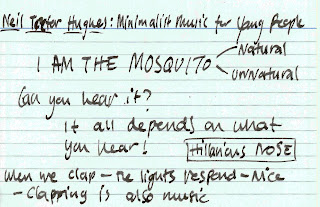 Neil Hughes: Minimalist Music for Young People
I AM THE MOSQUITO Natural
unnatural
Can you hear it?
It all depends on what
you hear!
Hillarious NOSE
When we clap – the lights respond – Nice
– Clapping is also music